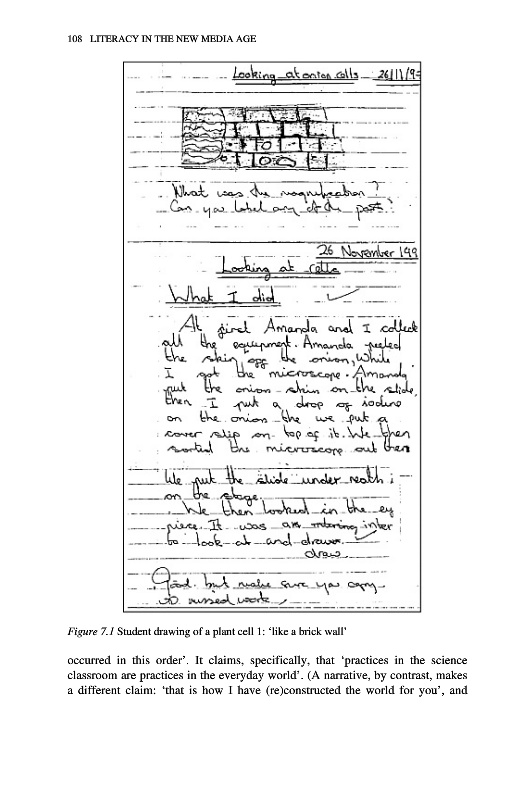 108 LITERACY IN THE NEW MEDIA AGE
Looking at onion cells 26/11/9
What was the magnification?
Can you label any of the parts?
26 November 199
Looking at cells
What I did
At first Amanda and I collect
all the equipment. Amanda peeled
the skin off the onion, while
I got the microscope. Amanda
put the onion skin on the slide,
then I put a drop of iodine
on the onion the we put a
cover slip on top of it. We then
sorted the microscope out then
We put the slide under neath
on the stage.
We then looked in the ey
piece. It was an
to look at and draw
draw
Good. but make sure you copy
up missed work
Figure 7.1 Student drawing of a plant cell 1: ‘like a brick wall’
occurred in this order’. It claims, specifically, that ‘practices in the science
classroom are practices in the everyday world’. (A narrative, by contrast, makes
a different claim: ‘that is how I have (re)constructed the world for you’, and